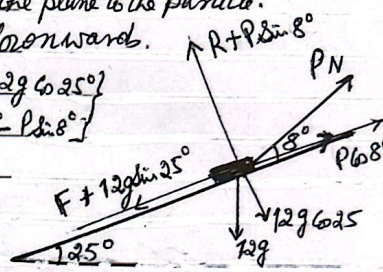 the plane to the particle.
onwards.
2g Cos 25°}
- P Sin 8°]
R + P Sin 8°
P N
8°
P Cos 8°
F + 12g Sin 25°
12g Cos 25
12g
25°